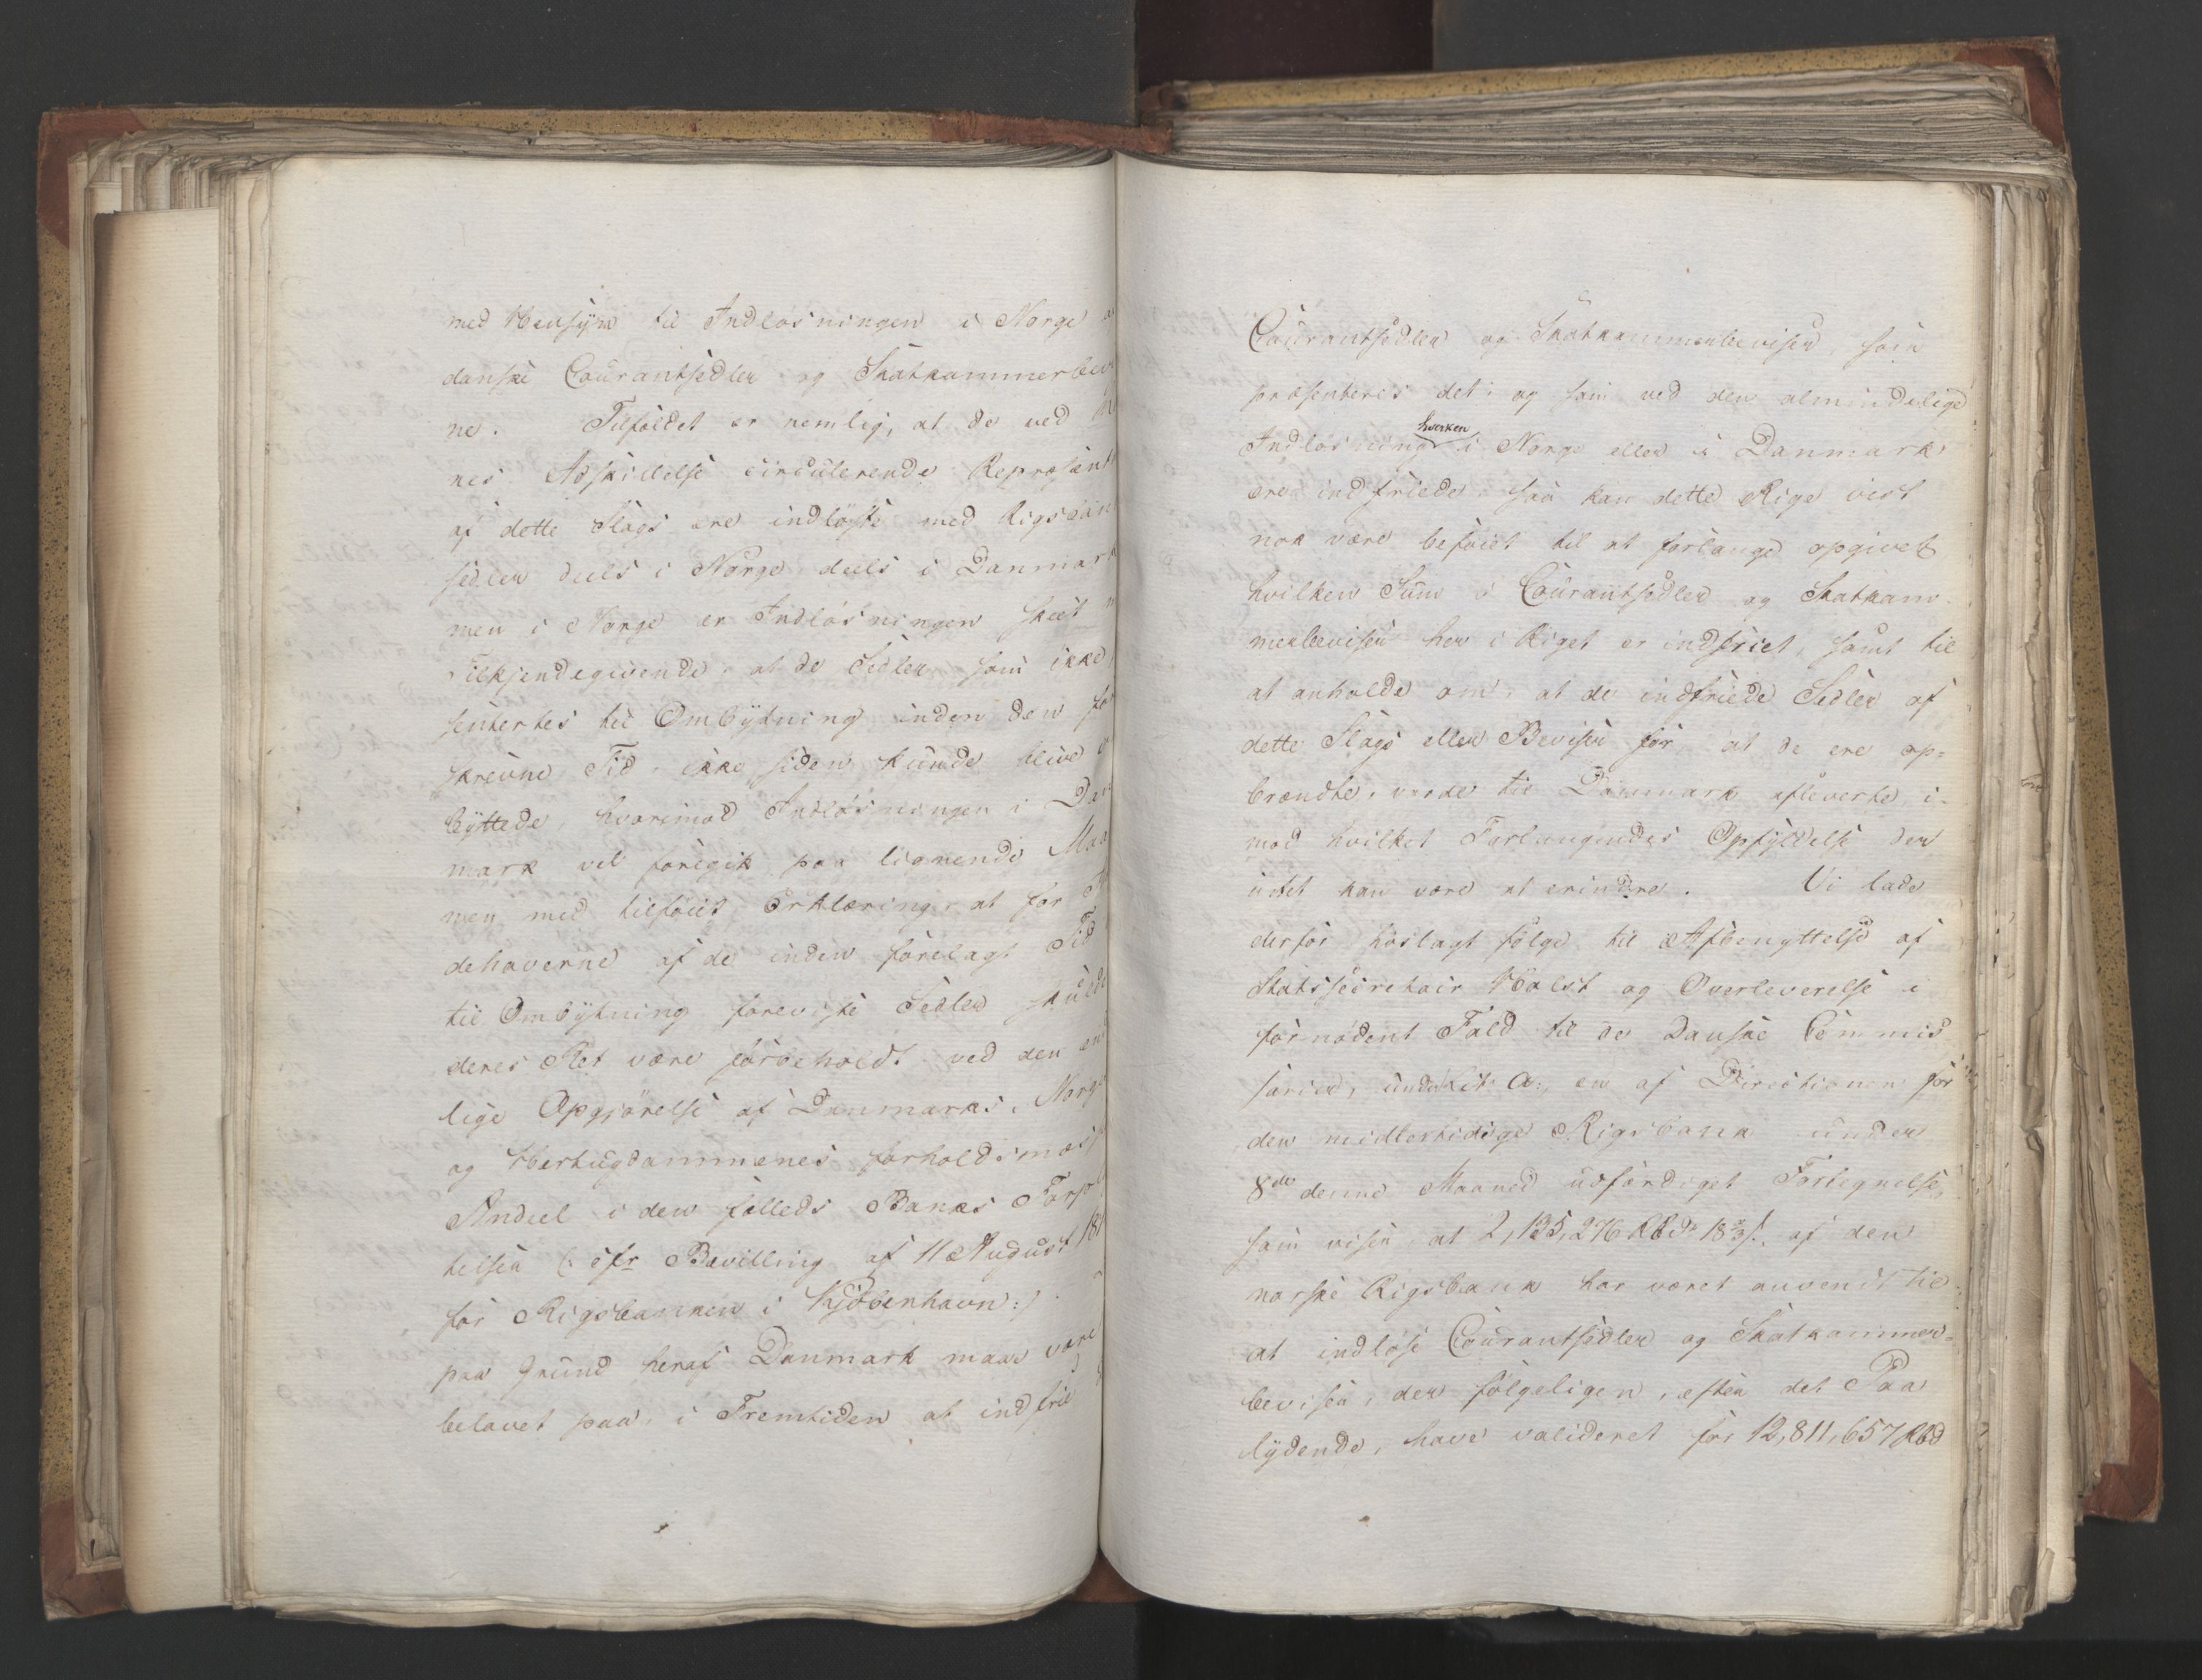 med Hensyn til Indløsningen i Norge a
danske Courantsedler og Skatkammerbev
ne. Tilfældet er nemlig, at de ved
nes Adskillelse circulerende Repræsent
af dette Slags ere indløste med Rigsban
sedler deels i Norge deels i Danmark
men i Norge er Indløsningen skeet
Tilkjendegivende, at de Sedler som ikke
sentertes til Ombytning inden den for
skrevne Tid, ikke siden kunde blive
byttede, hvorimod Indløsningen i Dan
mark vel foregik paa lignende Maa
men med tilføiet Erklæring, at for
dehaverne af de inden forelagt Tid
til Ombytning foreviste Sedler skulde
deres Ret være forbeholdt ved den en
lige Opgjørelse af Danmarks, Norge
og Hertugdømmenes forholdsmæs
Andeel i den fælleds Banks Forpl
telser (: cfr Bevilling af 11 August 181
for Rigsbanken i Kjøbenhavn :).
paa Grund heraf Danmark maae være
belavet paa, i Fremtiden at indfrie
Courantsedler og Skatkammerbeviser, som
præsenteres det, og som ved den almindelige
hverken
Indløsning i Norge eller i Danmark
ere indfriede, saa kan dette Rige vist
nok være beføiet til at forlange opgivet
hvilken Sum i Courantsedler og Skatkam-
merbeviser her i Riget er indfriet, samt til
at anholde om, at de indfriede Sedler af
dette Slags eller Beviser for, at de ere op=
brændte, vorde til Danmark afleverte, i-
mod hvilket Forlangendes Opfyldelse der
intet kan være at erindre. Vi lade
derfor hoslagt følge til Afbenyttelse af
Statssecretair Holst og Overleverelse i
fornødent Fald til de Danske Commis
sarier, under Lit: a:, en af Directionen for
den midlertidige Rigsbank under
8de denne Maaned udfærdiget Fortegnelse,
som viser, at 2,135,276 Rbdr 18⅔ s. af den
norske Rigsbank har været anvendt til
at indløse Courantsedler og Skatkammer=
beviser, der følgeligen, efter det Paa
lydende, have valideret for 12,811,657 Rbd